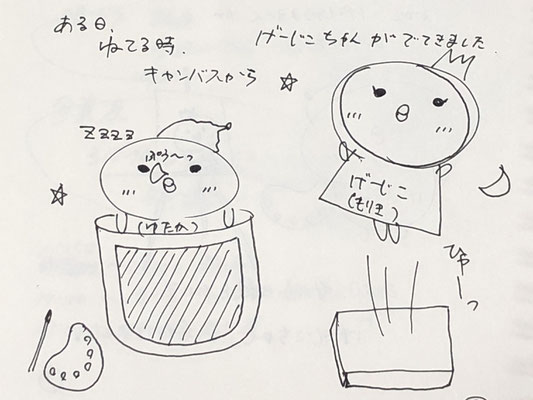 ある日、
ねてる時、
キャンバスから
げーじこちゃんがでてきました
zzzz
ぷう〜っ
(ゆたか)
げーじこ
(もりま)
ひゅーっ